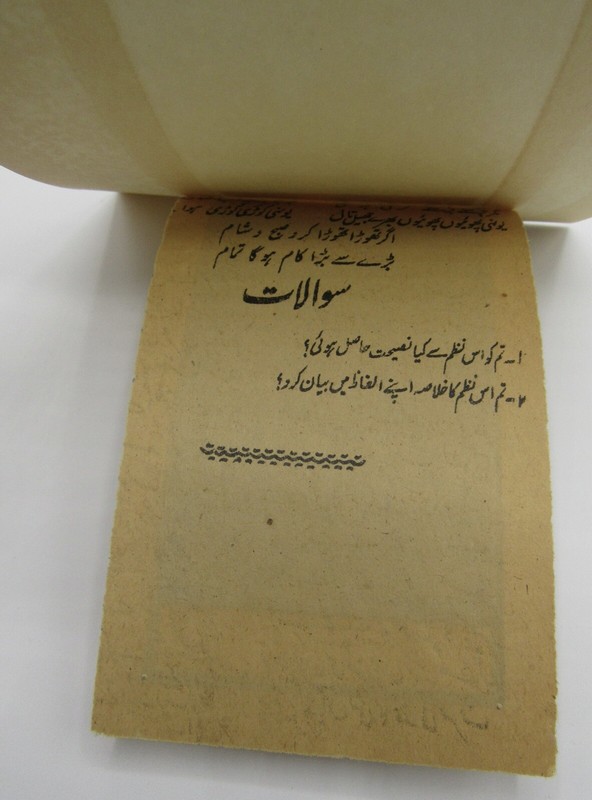 یونہی کوڑی کوڑی
اگر تھوڑا تھوڑا کرو صبح و شام
بڑے سے بڑا کام ہوگا تمام
سوالات
۱۔ تم کو اس نظم سے کیا نصیحت حاصل ہوئی؟
۲۔ تم اس نظم کا خلاصہ اپنے الفاظ میں بیان کرو؟